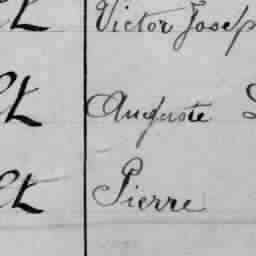 et Victor Josep
et Auguste
et Pierre